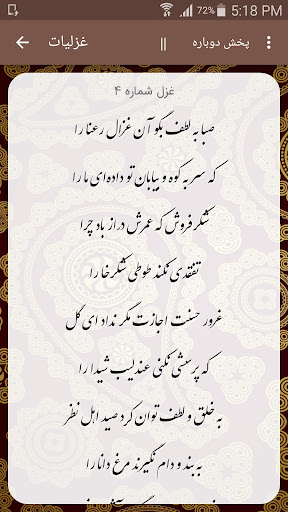 72% 5:18 PM
غزلیات پخش دوباره
غزل شماره ۴
صبا به لطف بگو آن غزال رعنا را
که سر به کوه و بیابان تو داده‌ای ما را
شکرفروش که عمرش دراز باد چرا
تفقدی نکند طوطی شکرخا را
غرور حسنت اجازت مگر نداد ای گل
که پرسشی نکنی عندلیب شیدا را
به خلق و لطف توان کرد صید اهل نظر
به بند و دام نگیرند مرغ دانا را